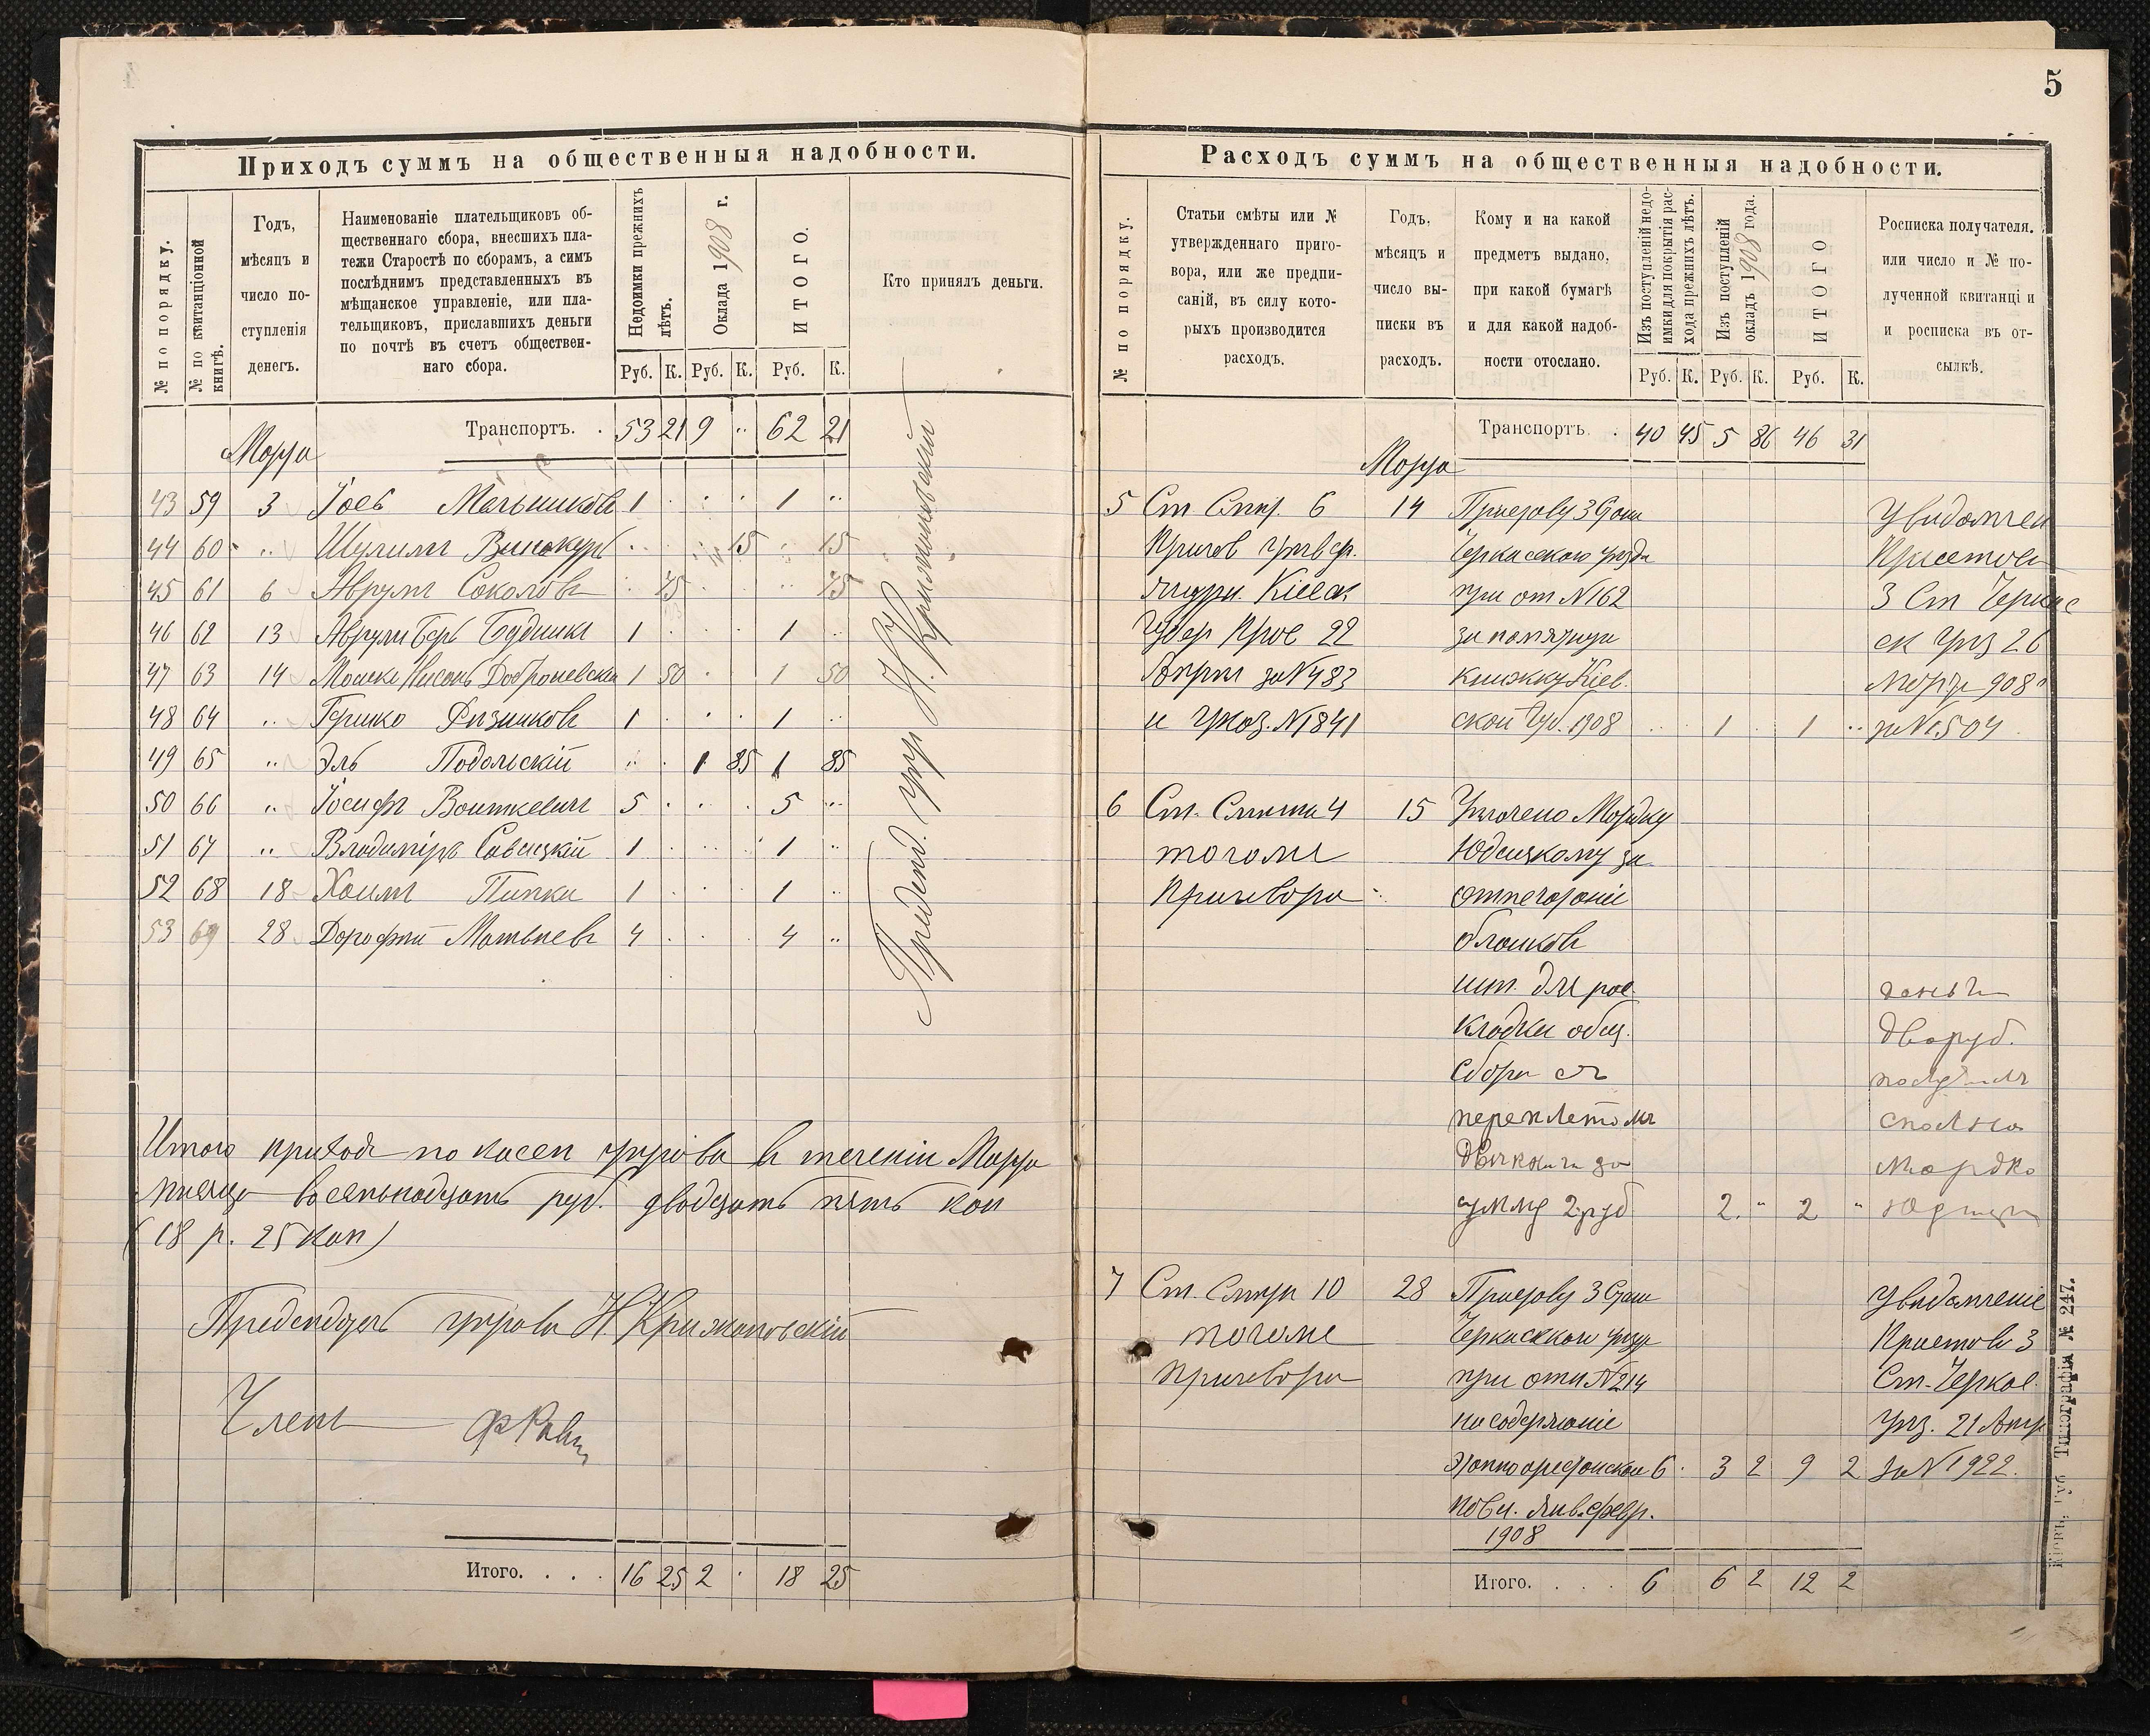 5
Приходъ суммъ на общественныя надобности.
№ по порядку.
№ по квитанціонной книгѣ.
Годъ,
мѣсяцъ и
число по-
ступленія
денегъ.
Наименованіе плательщиковъ об-
щественнаго сбора, внесшихъ пла-
тежи Старостѣ по сборамъ, а симъ
послѣднимъ представленныхъ въ
мѣщанское управленіе, или пла-
тельщиковъ, приславшихъ деньги
по почтѣ въ счетъ обществен-
наго сбора.
Недоимки прежнихъ лѣтъ.
Оклада 1908 г.
ИТОГО.
Кто принялъ деньги.
Руб. К. Руб. К. Руб. К.
Транспортъ. . 53 21 9 „ 62 21
Марта
43 59 3 Іосъ Мельниковъ 1 1 „
44 60 „ Шулимъ Винокуръ 15 15
45 61 6 Аврумъ Соколовъ 75 75
46 62 13 Аврумъ Беръ Будникъ 1 1 „
47 63 14 Мошке Нисонъ 1 50 1 50
48 64 „ Гершко 1 1 „
49 65 „ Эль Подольскій 1 85 1 85
50 66 „ Іосифъ Войткевичъ 5 5 „
51 67 „ Владиміръ Савицкій 1 1 „
52 68 18 Хаимъ Пипка 1 1 „
53 69 28 Дорофѣй Матвѣевъ 4 4 „
Предсѣд. упр. Н. Крижановскій
Итого приходъ по кассѣ управы въ теченіи Марта
мѣсяца восемьнадцать руб. двадцать пять коп
(18 р. 25 коп)
Предсѣдатель управы Н. Крижановскій
Членъ
Итого. . . . 16 25 2 18 25
Расходъ суммъ на общественныя надобности.
№ по порядку.
Статьи смѣты или №
утвержденнаго приго-
вора, или же предпи-
саній, въ силу кото-
рыхъ производится
расходъ.
Годъ,
мѣсяцъ и
число вы-
писки въ
расходъ.
Кому и на какой
предметъ выдано,
при какой бумагѣ
и для какой надоб-
ности отослано.
Изъ поступленій недо-
имки для покрытія рас-
хода прежнихъ лѣтъ.
Изъ поступленій
окладъ 1908 года.
ИТОГО
Росписка получателя.
или число и № по-
лученной квитанціи
и росписка въ от-
сылкѣ.
Руб. К. Руб. К. Руб. К.
Транспортъ . 40 45 5 86 46 31
Марта
5 Ст. Смѣт. 6 14 Приставу 3 Стана Увѣдомлен
Пригов. утвер. Черкасскаго уѣзда Пристава
журн. Кіевск. при от. № 162 3 Ст Черкас
Губер Прав 22 за памятную ск уѣз 26
Апрѣл за № 483 книжку Кіев- Марта 908
и указ. № 1841 ской Губ. 1908 1 1 „ за № 1504
6 Ст. Смѣты 4 15 Уплочено Мордку
тогоже Юдицкому за
Приговора отпечатаніе
бланковъ
шт. для рас- деньги
кладки общ. два руб.
Сбора съ получилъ
переплетомъ сполна
двѣ книги за мордко
сумму 2 руб 2 „ 2 „
7 Ст. Смѣты 10 28 Приставу 3 Стана Увѣдомленіе
тогоже Черкасскаго уѣзда Пристава 3
приговора при отн № 214 Ст. Черкас.
на содержаніе Уѣз. 21 Апр
этапно арестантскую 6 3 2 9 2 за № 1922.
повин. Янв. Февр.
1908
Итого. . . . 6 6 2 12 2
Типографія № 247.